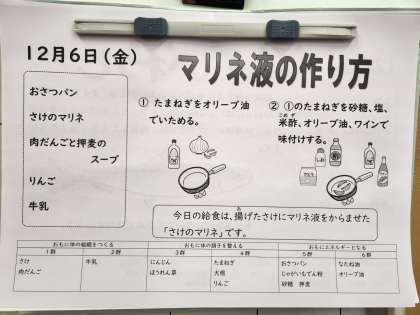 12月6日(金)
マリネ液の作り方
おさつパン
さけのマリネ
肉だんごと押麦の
スープ
りんご
牛乳
① たまねぎをオリーブ油
でいためる。
② ①のたまねぎを砂糖、塩、
米酢、オリーブ油、ワインで
こめ ず
味付けする。
今日の給食は、揚げたさけにマリネ液をからませた
あ
「さけのマリネ」です。
おもに体の組織をつくる
おもに体の調子を整える
おもにエネルギーとなる
1群 2群 3群 4群 5群 6群
さけ 牛乳 にんじん たまねぎ おさつパン なたね油
肉だんご ほうれん草 大根 じゃがいもでん粉 オリーブ油
りんご 砂糖 押麦